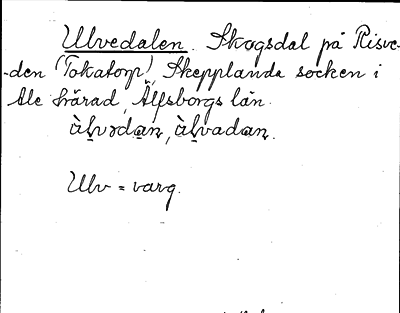 Ulvedalen. Skogsdal på Risve-
-den (Tokatorp), Skepplanda socken i
Ale härad, Älfsborgs län.
Ulv = varg.